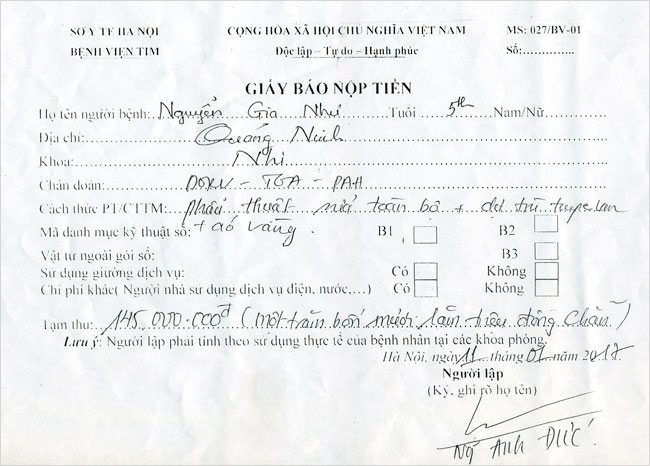 SỞ Y TẾ HÀ NỘI CỘNG HÒA XÃ HỘI CHỦ NGHĨA VIỆT NAM MS: 027/BV-01
BỆNH VIỆN TIM Độc lập – Tự do – Hạnh phúc Số:
GIẤY BÁO NỘP TIỀN
Họ tên người bệnh: Nguyễn Gia Như Tuổi 5th Nam/Nữ
Địa chỉ: Quảng Ninh
Khoa: Nhi
Chẩn đoán: DORV - TGA - PAH
Cách thức PT/CTTM: phẫu thuật sửa toàn bộ + dự trù
Mã danh mục kỹ thuật số: + áo vàng. B1 B2
Vật tư ngoài gói số: B3
Sử dụng giường dịch vụ: Có Không
Chi phí khác( Người nhà sử dụng dịch vụ điện, nước,...) Có Không
Tạm thu: 145.000.000đ (Một trăm bốn mươi lăm triệu đồng chẵn)
Lưu ý: Người lập phải tính theo sử dụng thực tế của bệnh nhân tại các khoa phòng.
Hà Nội, ngày 11 tháng 07 năm 2017
Người lập
(Ký, ghi rõ họ tên)
Ngô Anh Đức